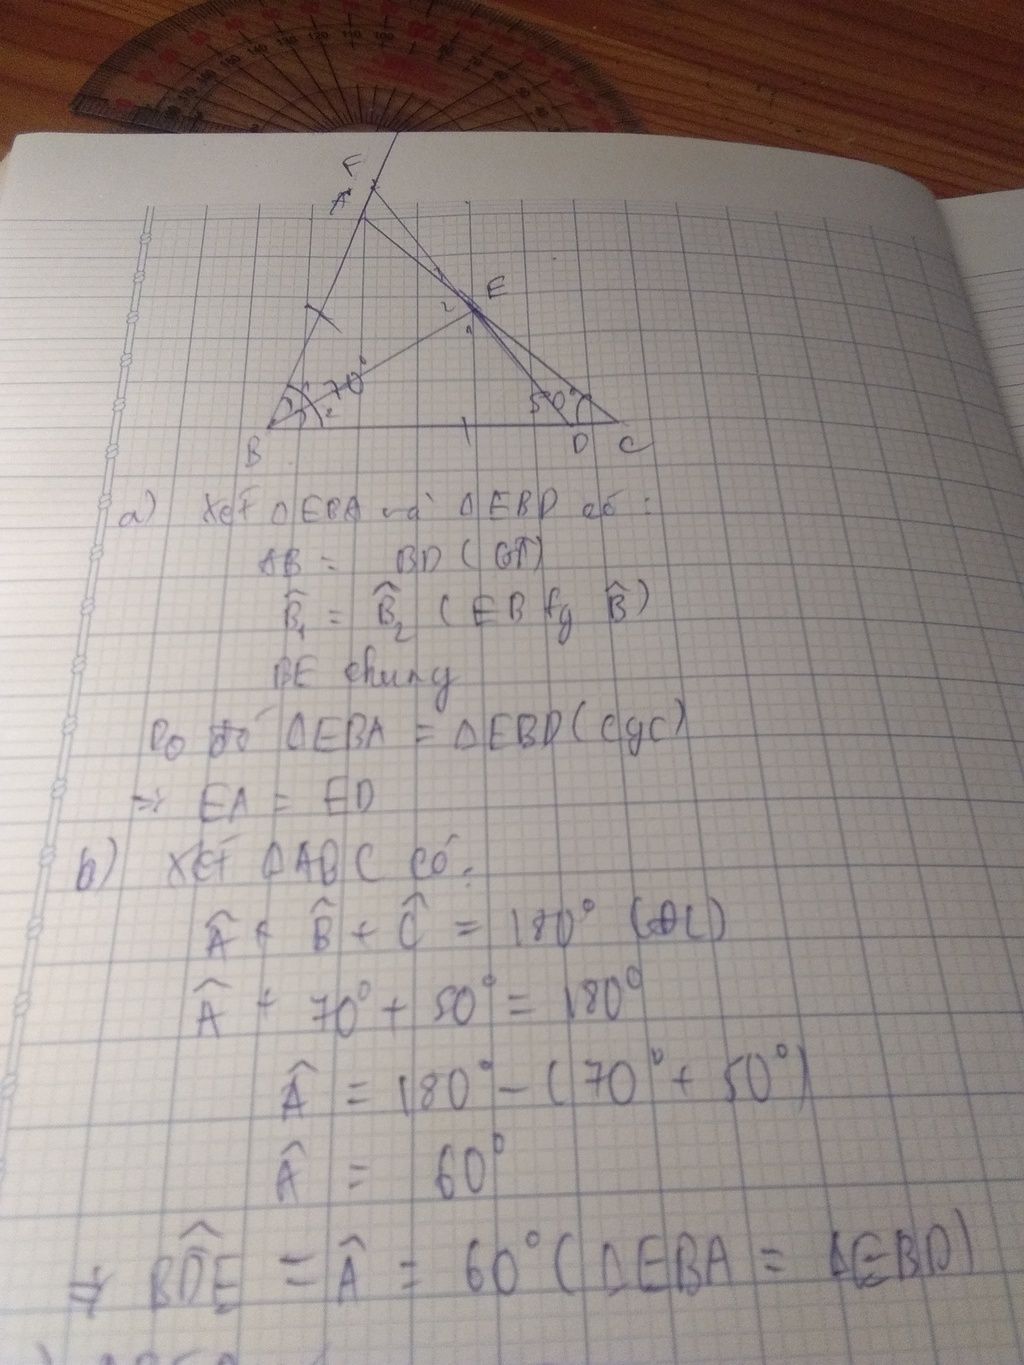 F
A
E
2
2
70°
2
50°
B
D
C
a) Xét ΔEBA và ΔEBD có:
AB = BD (GT)
B̂₁ = B̂₂ (EB fg B̂)
BE chung
Do đó ΔEBA = ΔEBD (cgc)
⇒ EA = ED
b) Xét ΔABC có:
Â + B̂ + Ĉ = 180° (ĐL)
Â + 70° + 50° = 180°
Â = 180° - (70° + 50°)
Â = 60°
⇒ BD̂E = Â = 60° (ΔEBA = ΔEBD)